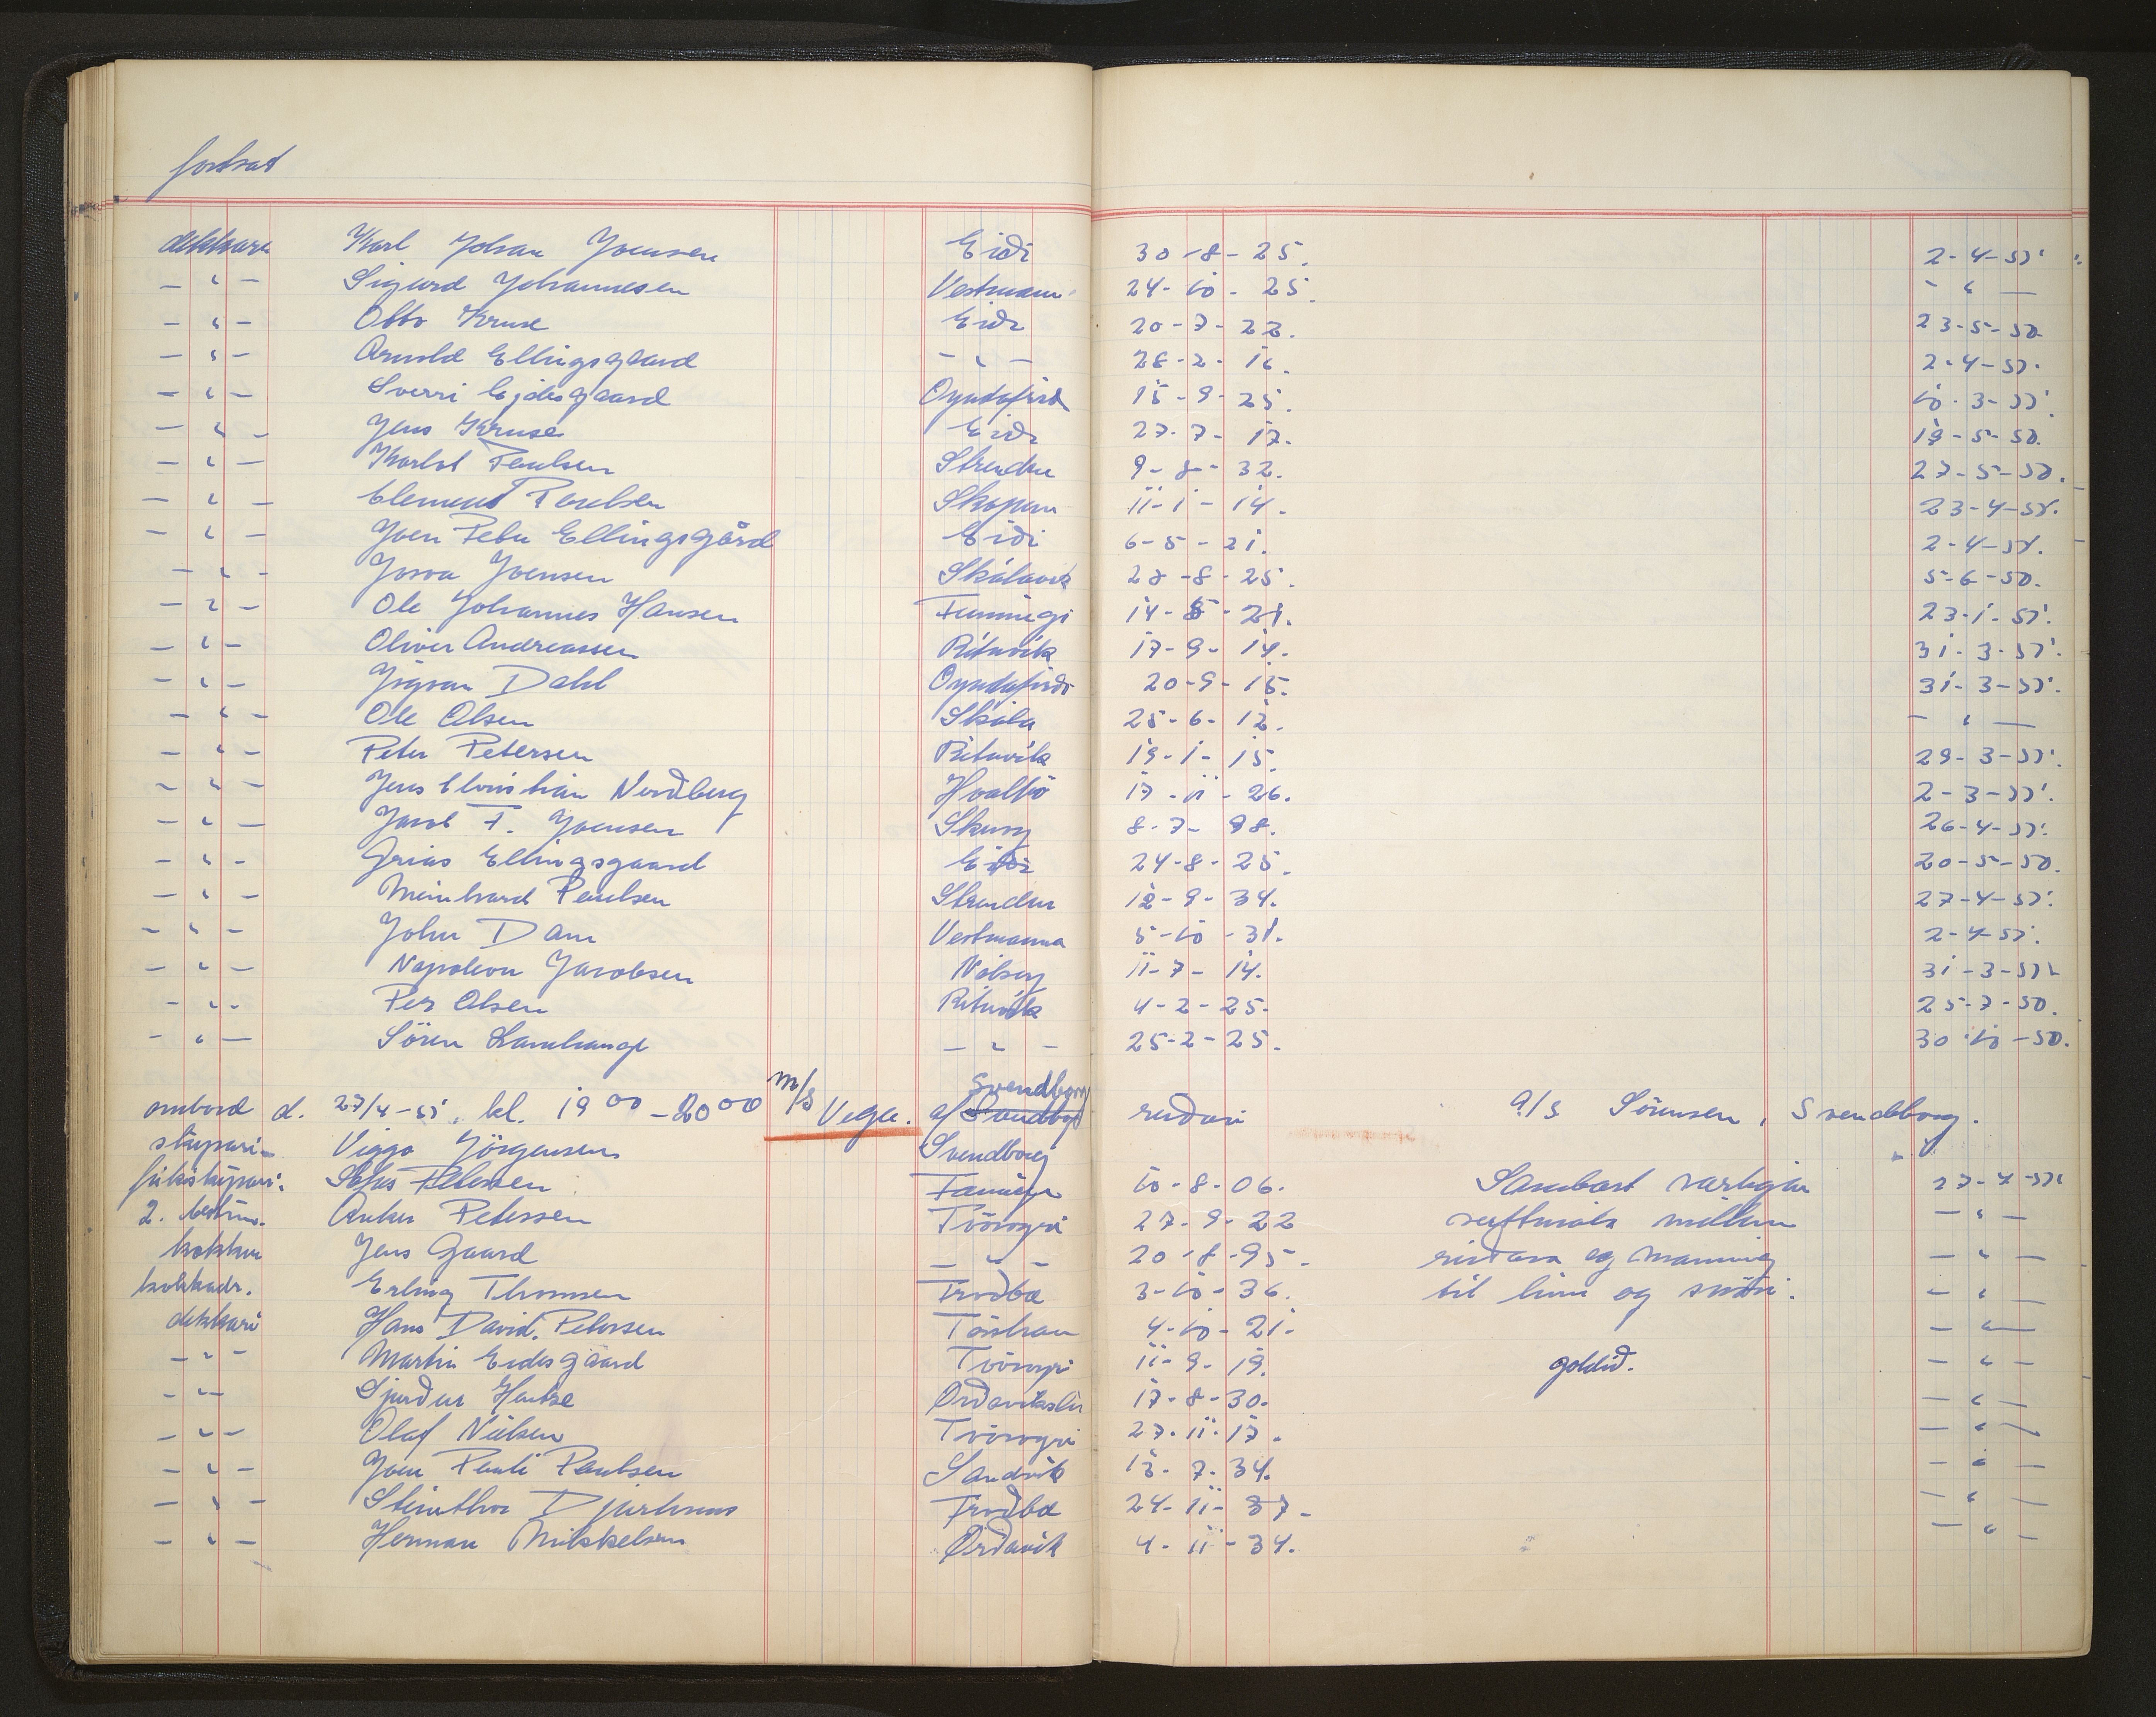 fortsat
dekkari Karl Johan Joensen Eiði 30-8-25. 2-4-51.
- " - Sigurd Johannesen Vestmann 24-10-25. - " -
- " - Otto Kruse Eiði 20-7-22. 23-5-50.
- " - Arnold Ellingsgaard - " - 28-2-16. 2-4-51.
- " - Sverri Ejdesgaard Oyndafirð 15-9-25. 10-3-51.
- " - Jens Kruse Eiði 27-7-17. 19-5-50.
- " - Karlot Poulsen Strendur 9-8-32. 27-5-50.
- " - Clement Poulsen Skopun 11-1-14. 23-4-51.
- " - Joen Peter Ellingsgård Eiði 6-5-21. 2-4-51.
- " - Josva Joensen Skálavík 28-8-25. 5-6-50.
- " - Ole Johannes Hansen Funningi 14-8-21. 23-1-51.
- " - Oliver Andreassen Rituvík 17-9-14. 31-3-51.
- " - Jógvan Dahl Oyndafirði 20-9-15. 31-3-51.
- " - Ole Olsen Skála 25-6-12. - " -
- " - Peter Petersen Rituvík 19-1-15. 29-3-51.
- " - Jens Christian Norðberg Hvalbö 17-11-26. 2-3-51.
- " - Jacob F. Joensen 8-7-98. 26-4-51.
- " - Ellingsgaard Eiði 24-8-25. 20-5-50.
- " - Meinhard Poulsen Strendur 12-9-34. 27-4-51.
- " - John Dam Vestmanna 5-10-31. 2-4-51.
- " - Napoleon Jacobsen Nólsoy 11-7-14. 31-3-51.
- " - Per Olsen Rituvík 4-2-25. 25-7-50.
- " - Sören Lamhauge - " - 25-2-25. 30-10-50.
ombord d. 27/4-51. kl. 19 00 - 20 00 m/s Vega. af Svendborg reiðari A/S Sörensen, Svendborg.
skipari- Viggo Jörgensen Svendborg
fiskiskipari. Petersen Fámjin 10-8-06. Sambært vanligar 27-4-51
2. bestim. Anker Petersen Tvöroyri 27-9-22 millum - " -
kokkur Jens Gaard - " - 20-8-95. reiðara og manning - " -
kokkadr. Erling Thomsen Froðba 3-10-36. til línu og snöri. - " -
dekkari Hans David Petersen 4-10-21. - " -
- " - Martin Eidesgaard Tvöroyri 11-9-19. goldið. - " -
- " - Sjurður Hentze Ørðavíkslíð 17-8-30. - " -
- " - Olaf Nielsen Tvöroyri 27-11-17. - " -
- " - Joen Pauli Poulsen Sandvík 13-7-34. - " -
- " - Steinthor Djurhuus Froðba 24-11-37. - " -
- " - Herman Mikkelsen Ørðavík 4-11-34. - " -